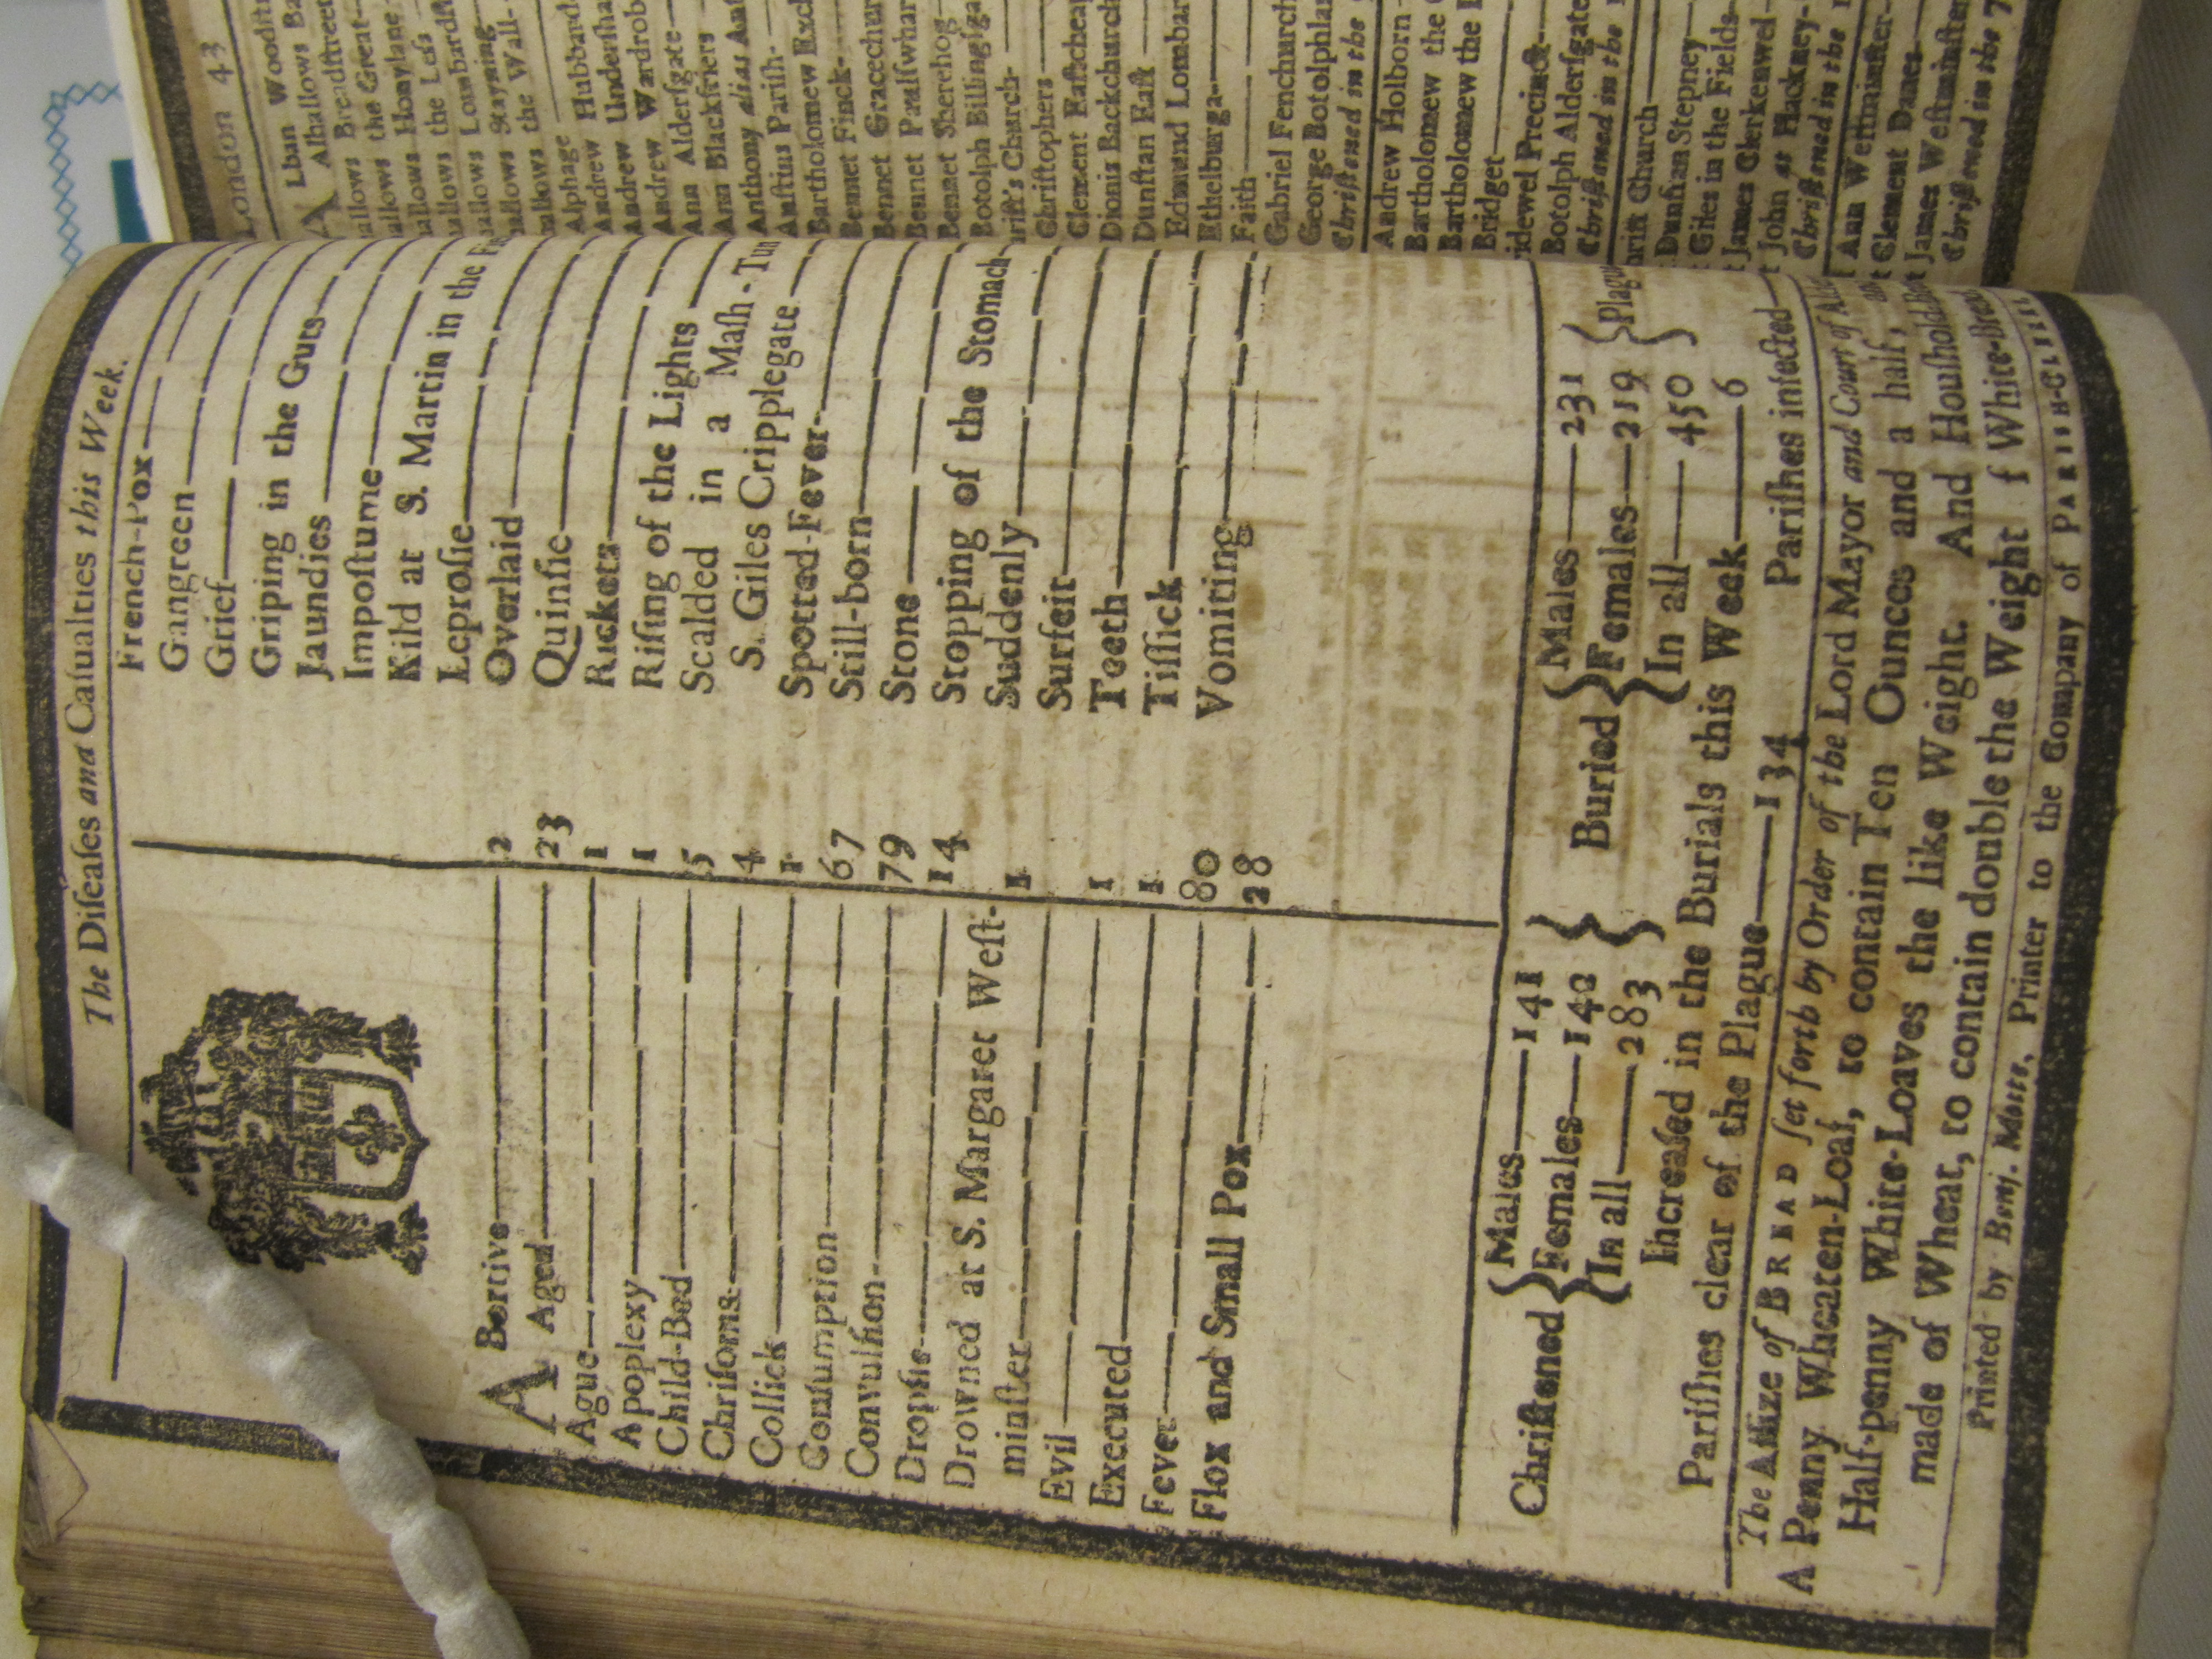 The Diſeaſes and Caſualties this Week.
A Bortive 2
Aged 23
Ague 1
Apoplexy 1
Child-Bed 5
Chriſoms 4
Collick 1
Conſumption 67
Convulſion 79
Dropſie 14
Drowned at S. Margaret Weſt-
minſter 1
Evil 1
Executed 1
Fever 80
Flox and Small Pox 28
French-Pox
Gangreen
Grief
Griping in the Guts
Jaundies
Impoſtume
Kild at S. Martin in the
Leproſie
Overlaid
Quinſie
Rickets
Riſing of the Lights
Scalded in a Maſh-Tun
S. Giles Cripplegate
Spotted-Fever
Still-born
Stone
Stopping of the Stomach
Suddenly
Surfeit
Teeth
Tiſſick
Vomiting
Chriſtened { Males 141 Females 142 In all 283 }
Buried { Males 231 Females 219 In all 450 } Plagu
Increaſed in the Burials this Week 6
Pariſhes clear of the Plague 134 Pariſhes infected
The Aſſize of BREAD ſet forth by Order of the Lord Mayor and Court of
A Penny Wheaten-Loaf, to contain Ten Ounces and a half,
Half-penny White-Loaves the like Weight. And Houſhold
made of Wheat, to contain double the Weight f White-
Printed by Benj. Motte, Printer to the Company of PARISH-CLERKS
London 43
A Lban Woodſt
Alhallows Ba
Breadſtreet
allows the Great
allows Honylane
allows the Leſs
allows Lombardſt
allows Stayning
allows the Wall
Alphage
Andrew Hubbard
Andrew Underſha
Andrew Wardrob
Ann Alderſgate
Ann Blackfriers
Anthony alias Ant
Auſtins Pariſh
Bartholomew Exc
Bennet Finck
Bennet Gracechur
Bennet Paulſwhar
Bennet Sherehog
Botolph Billingſga
riſt's Church
Chriſtophers
Clement Eaſtcheap
Dionis Backchurch
Dunſtan Eaſt
Edmund Lombar
Ethelburga
Faith
Gabriel Fenchurch
George Botolphla
Chriſtned in the
Andrew Holborn
Bartholomew the
Bartholomew the
Bridget
ridewel Precinct
Botolph Alderſgate
Chriſtned in the
hriſt Church
Dunſtan Stepney
Giles in the Fields
James Clerkenwel
John at Hackney
Chriſtned in the
Ann Weſtminſter
Clement Danes
James Weſtminſter
Chriſtned in the 7